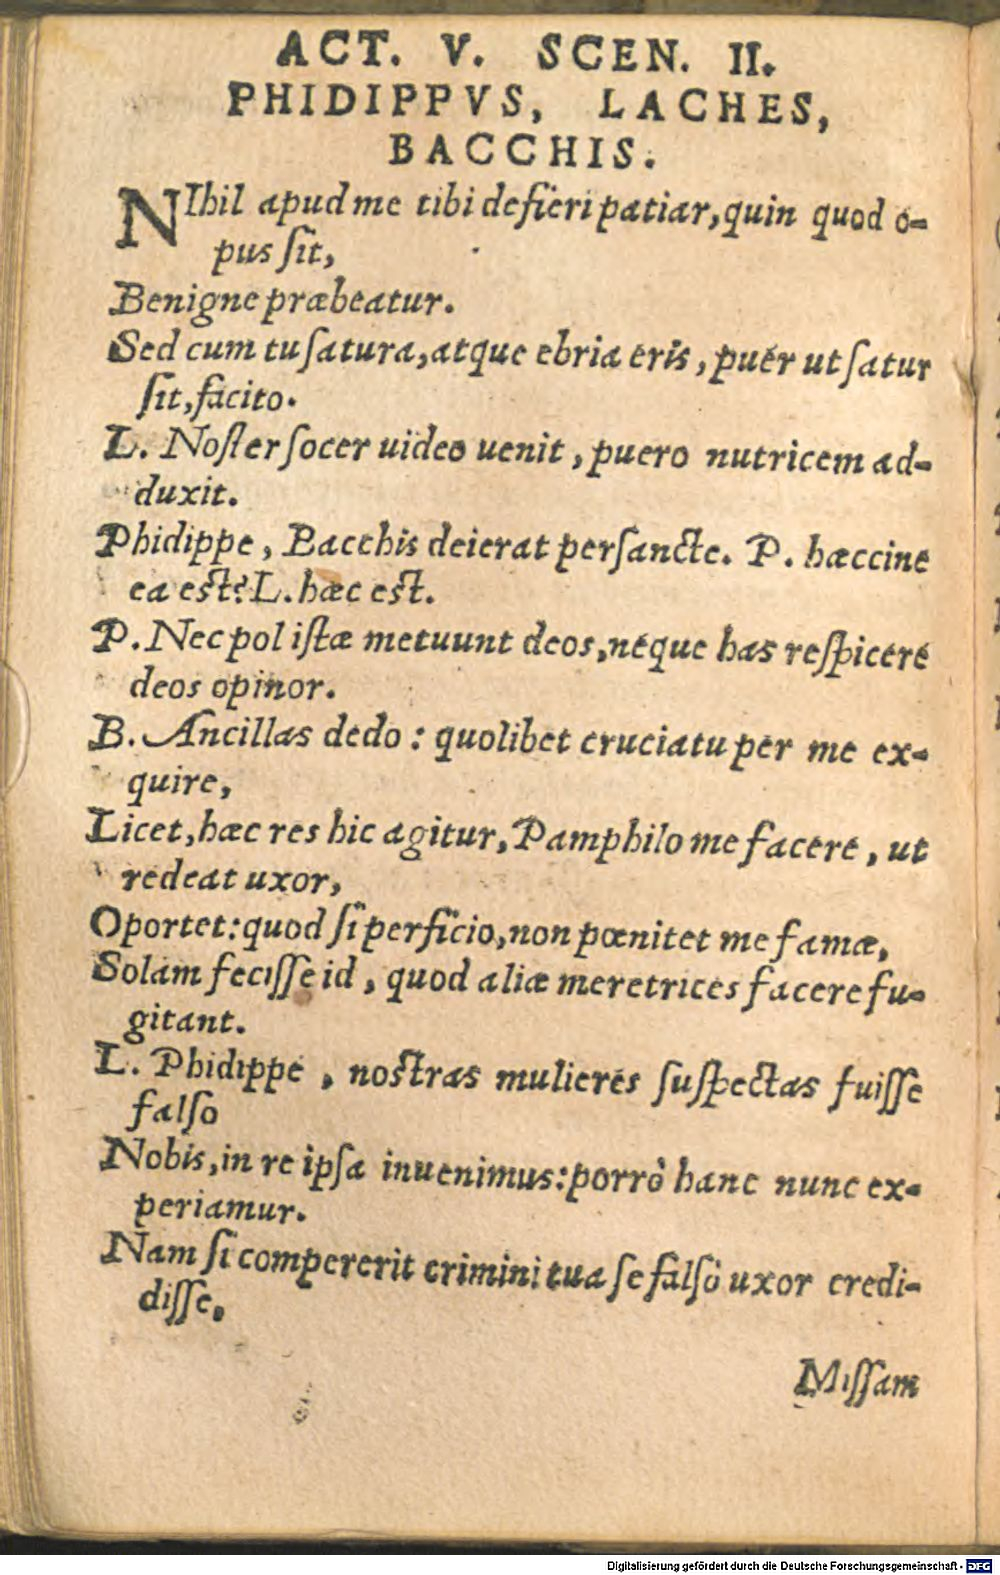 ACT. V. SCEN. II.
PHIDIPPVS, LACHES,
BACCHIS.
NIhil apud me tibi defieri patiar, quin quod o-
pus ſit,
Benigne præbeatur.
Sed cum tu ſatura, atque ebria eris, puer ut ſatur
ſit, facito.
L. Noſter ſocer uideo uenit, puero nutricem ad-
duxit.
Phidippe, Bacchis deierat perſancte. P. hæccine
ea eſt? L. hæc eſt.
P. Nec pol iſtæ metuunt deos, neque has reſpicere
deos opinor.
B. Ancillas dedo: quolibet cruciatu per me ex-
quire,
Licet, hæc res hic agitur, Pamphilo me facere, ut
redeat uxor,
Oportet: quod ſi perficio, non pœnitet me famæ,
Solam feciſſe id, quod aliæ meretrices facere fu-
gitant.
L. Phidippe, noſtras mulieres ſuſpectas fuiſſe
falſo
Nobis, in re ipſa inuenimus: porrò hanc nunc ex-
periamur.
Nam ſi compererit crimini tua ſe falſò uxor credi-
diſſe,
Miſſam
Digitalisierung gefördert durch die Deutsche Forschungsgemeinschaft - DFG